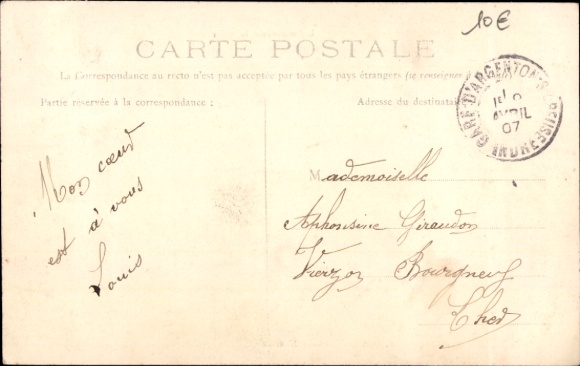 10€
CARTE POSTALE
La Correspondance au recto n'est pas acceptée par tous les pays étrangers (se renseigner à
Partie réservée à la correspondance :
Adresse du destinataire
GARE D'ARGENTON-S-CREUSE
AVRIL
07
INDRE
Mon cœur
est à vous
Louis
Mademoiselle
Alphonsine Giraudon
Vierzon Bourgneuf
Cher